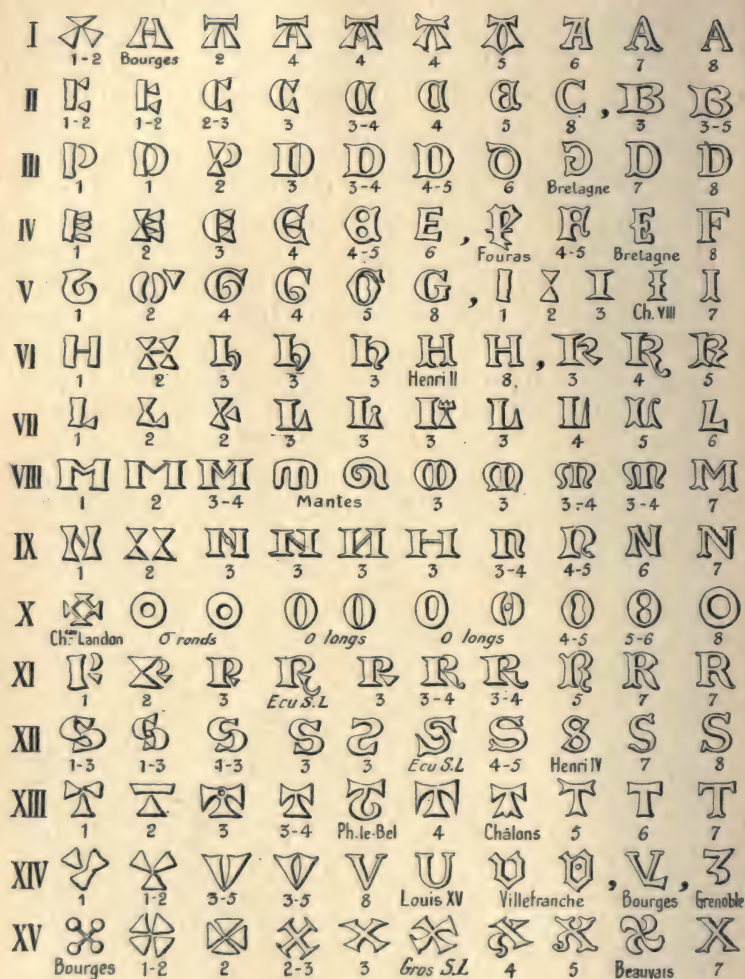 I A A A A A A A A A A
1-2 Bourges 2 4 4 4 5 6 7 8
II C C C C C C C C , B B
1-2 1-2 2-3 3 3-4 4 5 8 3 3-5
III D D D D D D D D D D
1 1 2 3 3-4 4-5 6 Bretagne 7 8
IV E E E E E E , F F F F
1 2 3 4 4-5 6 Fouras 4-5 Bretagne 8
V G G G G G G , I I I I I
1 2 4 4 5 8 1 2 3 Ch. VIII 7
VI H H H H H H H , K K K
1 2 3 3 3 Henri II 8. 3 4 5
VII L L L L L L L L L L
1 2 2 3 3 3 3 4 5 6
VIII M M M M M M M M M M
1 2 3-4 Mantes 3 3 3-4 3-4 7
IX N N N N N N N N N N
1 2 3 3 3 3 3-4 4-5 6 7
X O O O O O O O O O O
Ch.eau Landon O ronds O longs O longs 4-5 5-6 8
XI R R R R R R R R R R
1 2 3 Ecu S.L 3 3-4 3-4 5 7 7
XII S S S S S S S S S S
1-3 1-3 1-3 3 3 Ecu S.L 4-5 Henri IV 7 8
XIII T T T T T T T T T T
1 2 3 3-4 Ph.le-Bel 4 Châlons 5 6 7
XIV V V V V V U V V , VL , 3
1 1-2 3-5 3-5 8 Louis XV Villefranche Bourges Grenoble
XV X X X X X X X X X X
Bourges 1-2 2 2-3 3 Gros S.L 4 5 Beauvais 7